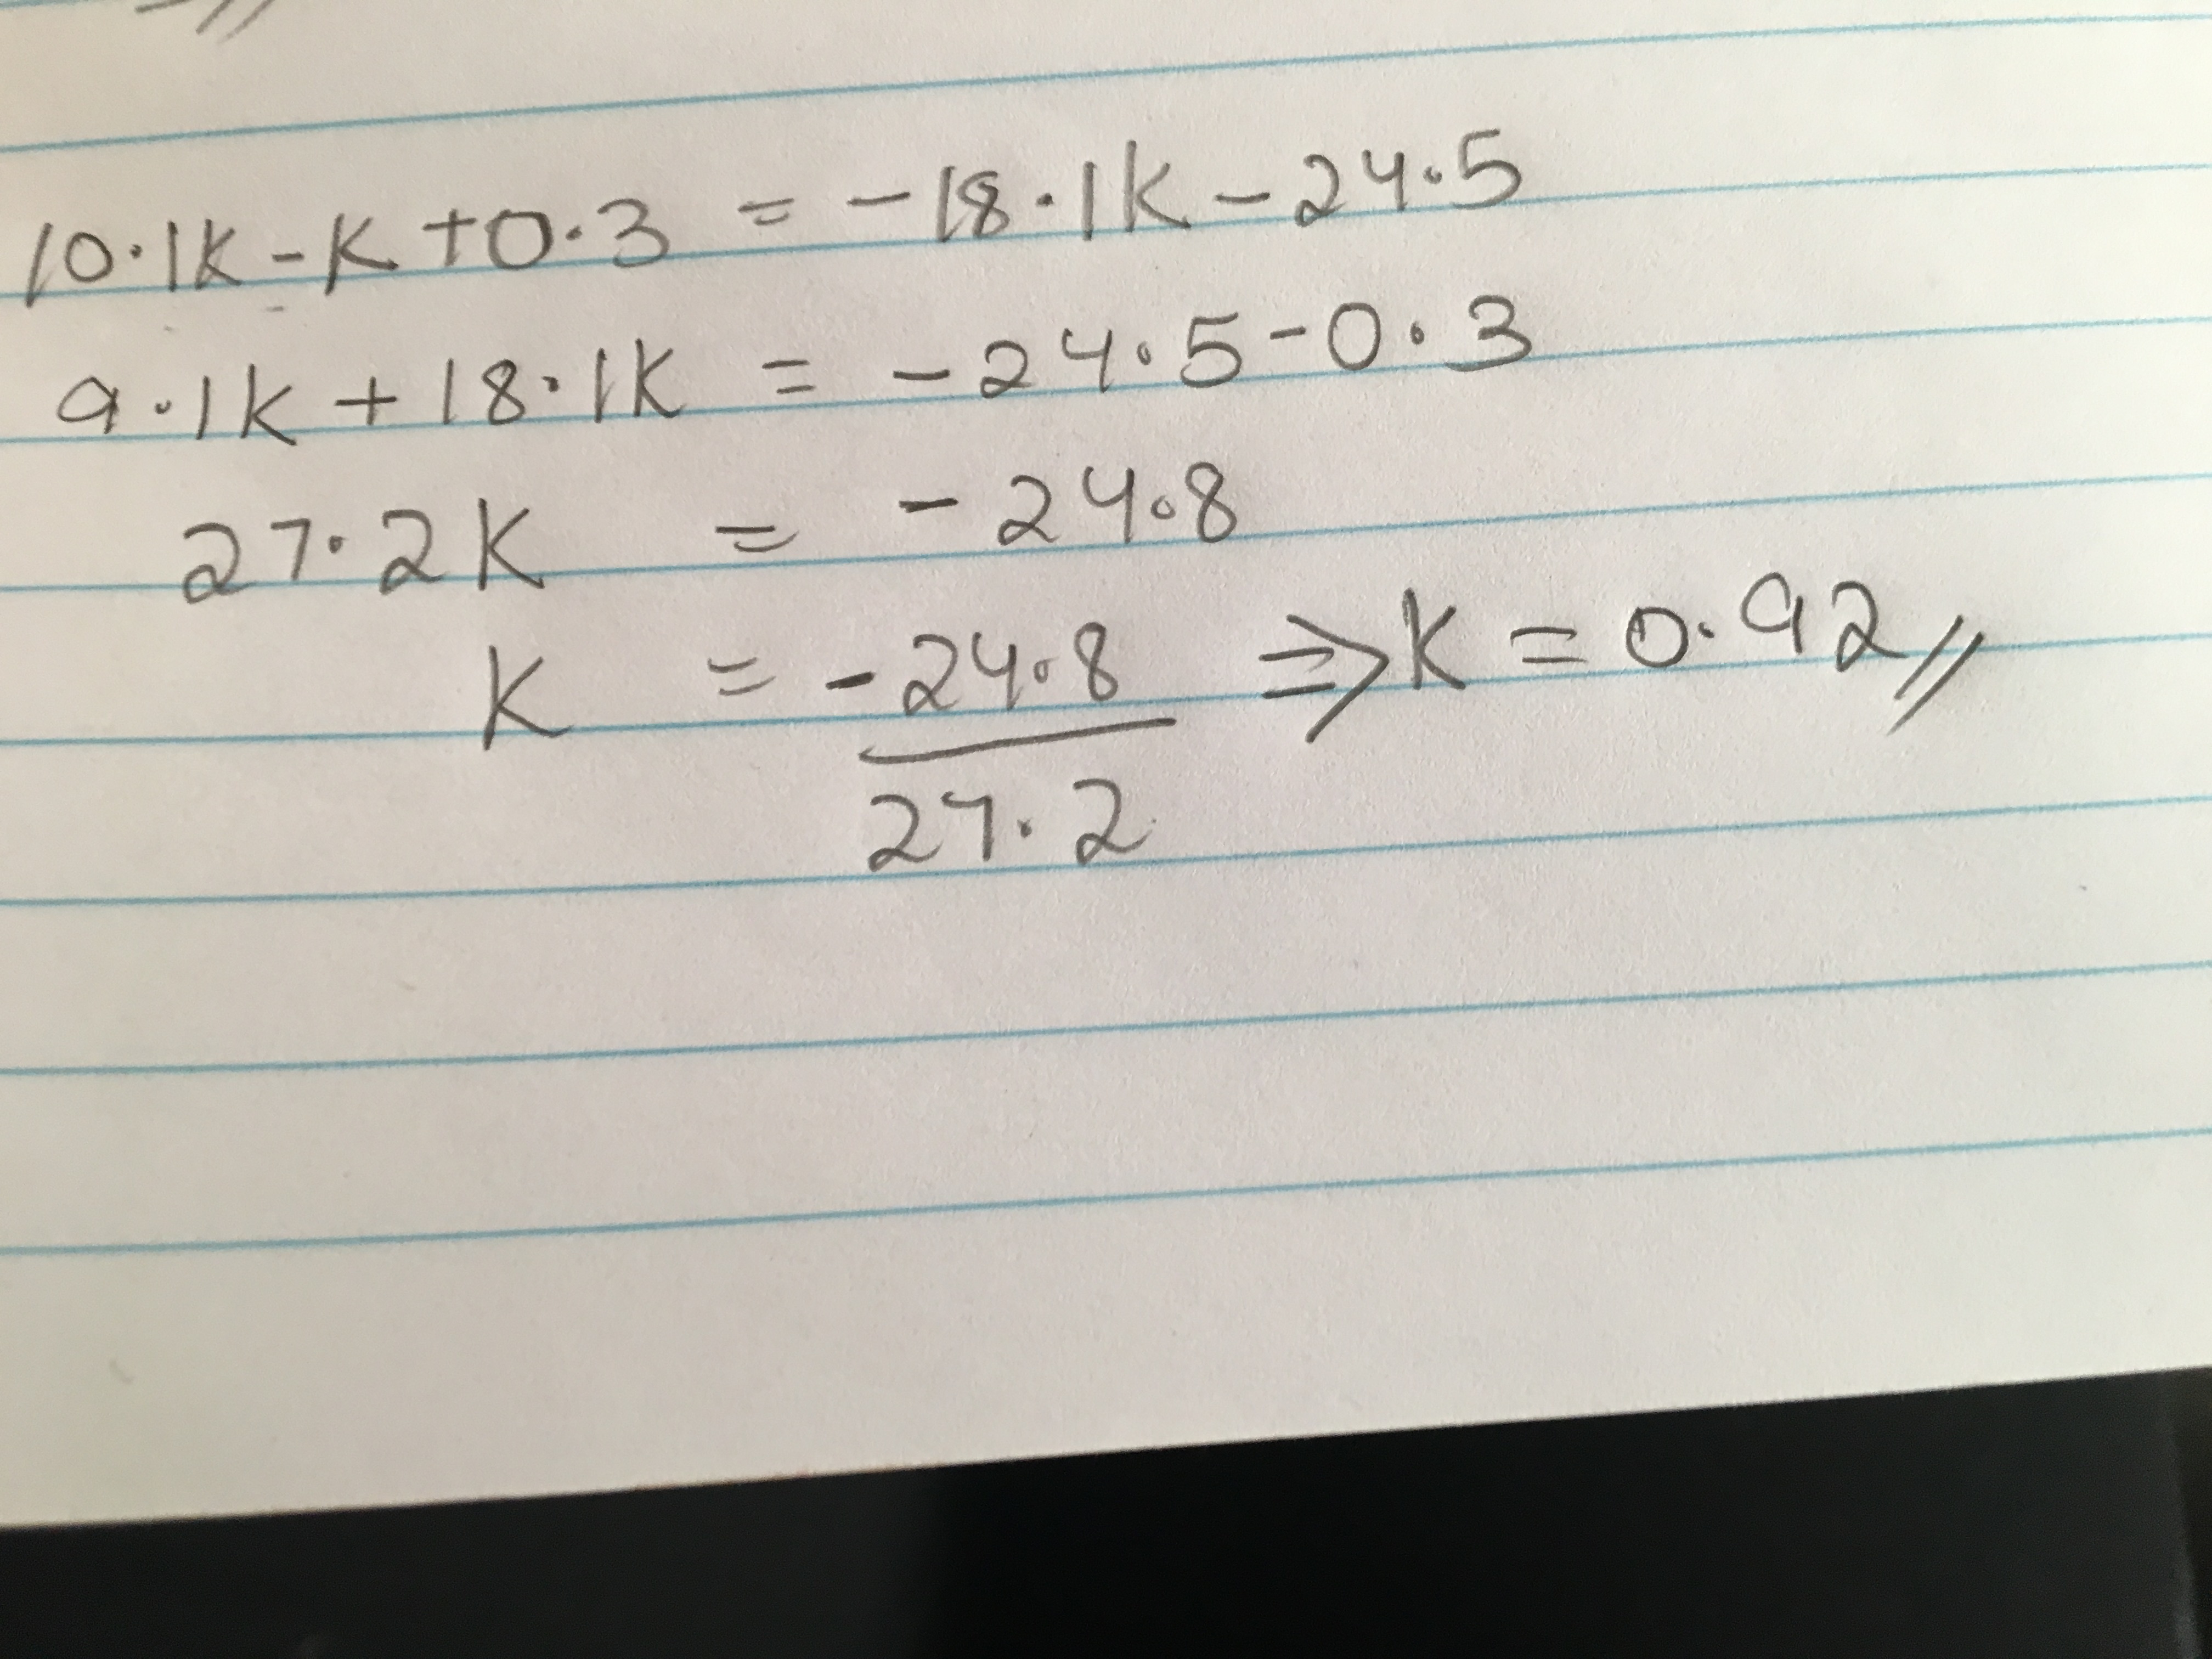 10.1k - k + 0.3 = - 18.1k - 24.5
9.1k + 18.1k = - 24.5 - 0.3
27.2k = - 24.8
k = - 24.8 / 27.2 ⇒ k = 0.92 //